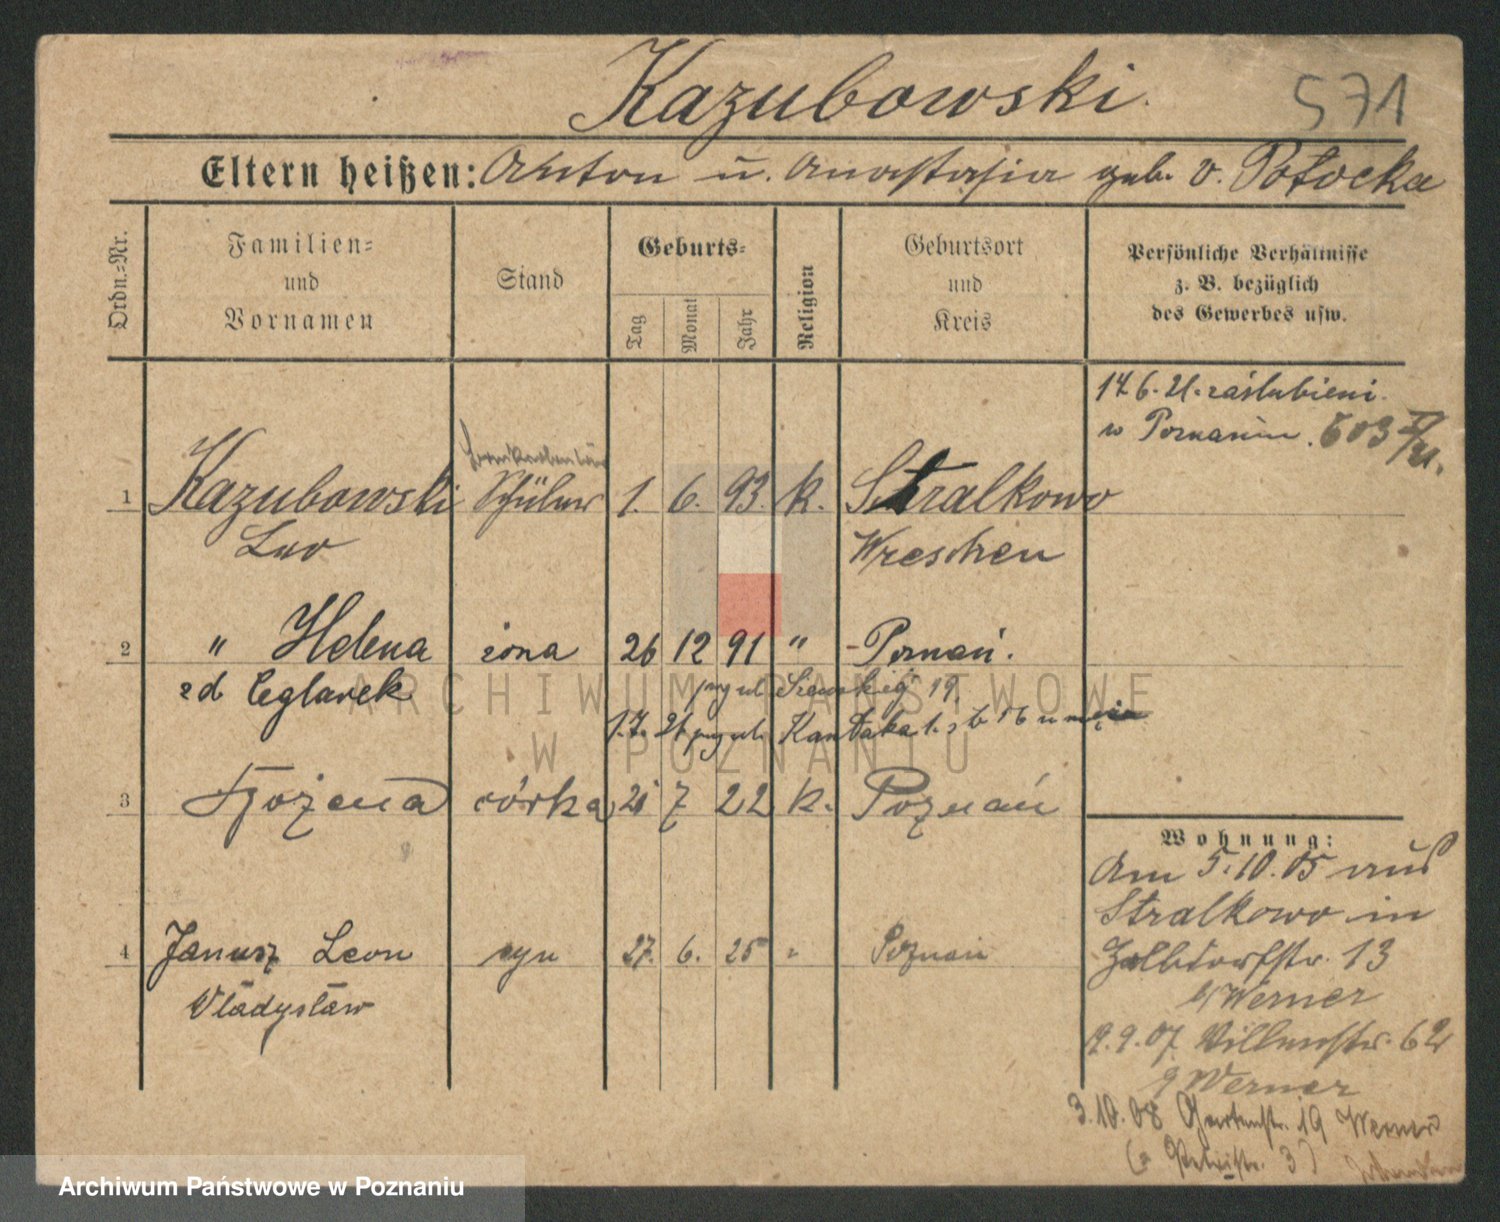 Kazubowski.
571
Eltern heißen: Anton u. Anastasia geb. v. Potocka
Ordn.=Nr.
Familien=
und
Vornamen
Stand
Geburts=
Tag
Monat
Jahr
Religion
Geburtsort
und
Kreis
Persönliche Verhältnisse
z. B. bezüglich
des Gewerbes usw.
17.6.21. zaślubieni
w Poznaniu. 603
1 Kazubowski Schüler 1. 6. 93. k. Stralkowo
Leo Wreschen
2 " Helena żona 26 12 91 " - Poznań.
zd Ceglarek
19
1.7. 21 Kantaka
3 Bożena córka 21 7 22 k. Poznań
4 Janusz Leon syn 27. 6. 25 " Poznań
Władysław
Wohnung:
Am 5.10.05 aus
Stralkowo in
13
b/Werner
9.07 62
Werner
3.10.08 Gartenstr. 19 Werner
(a Petristr. 3)
ARCHIWUM PAŃSTWOWE
W POZNANIU
Archiwum Państwowe w Poznaniu